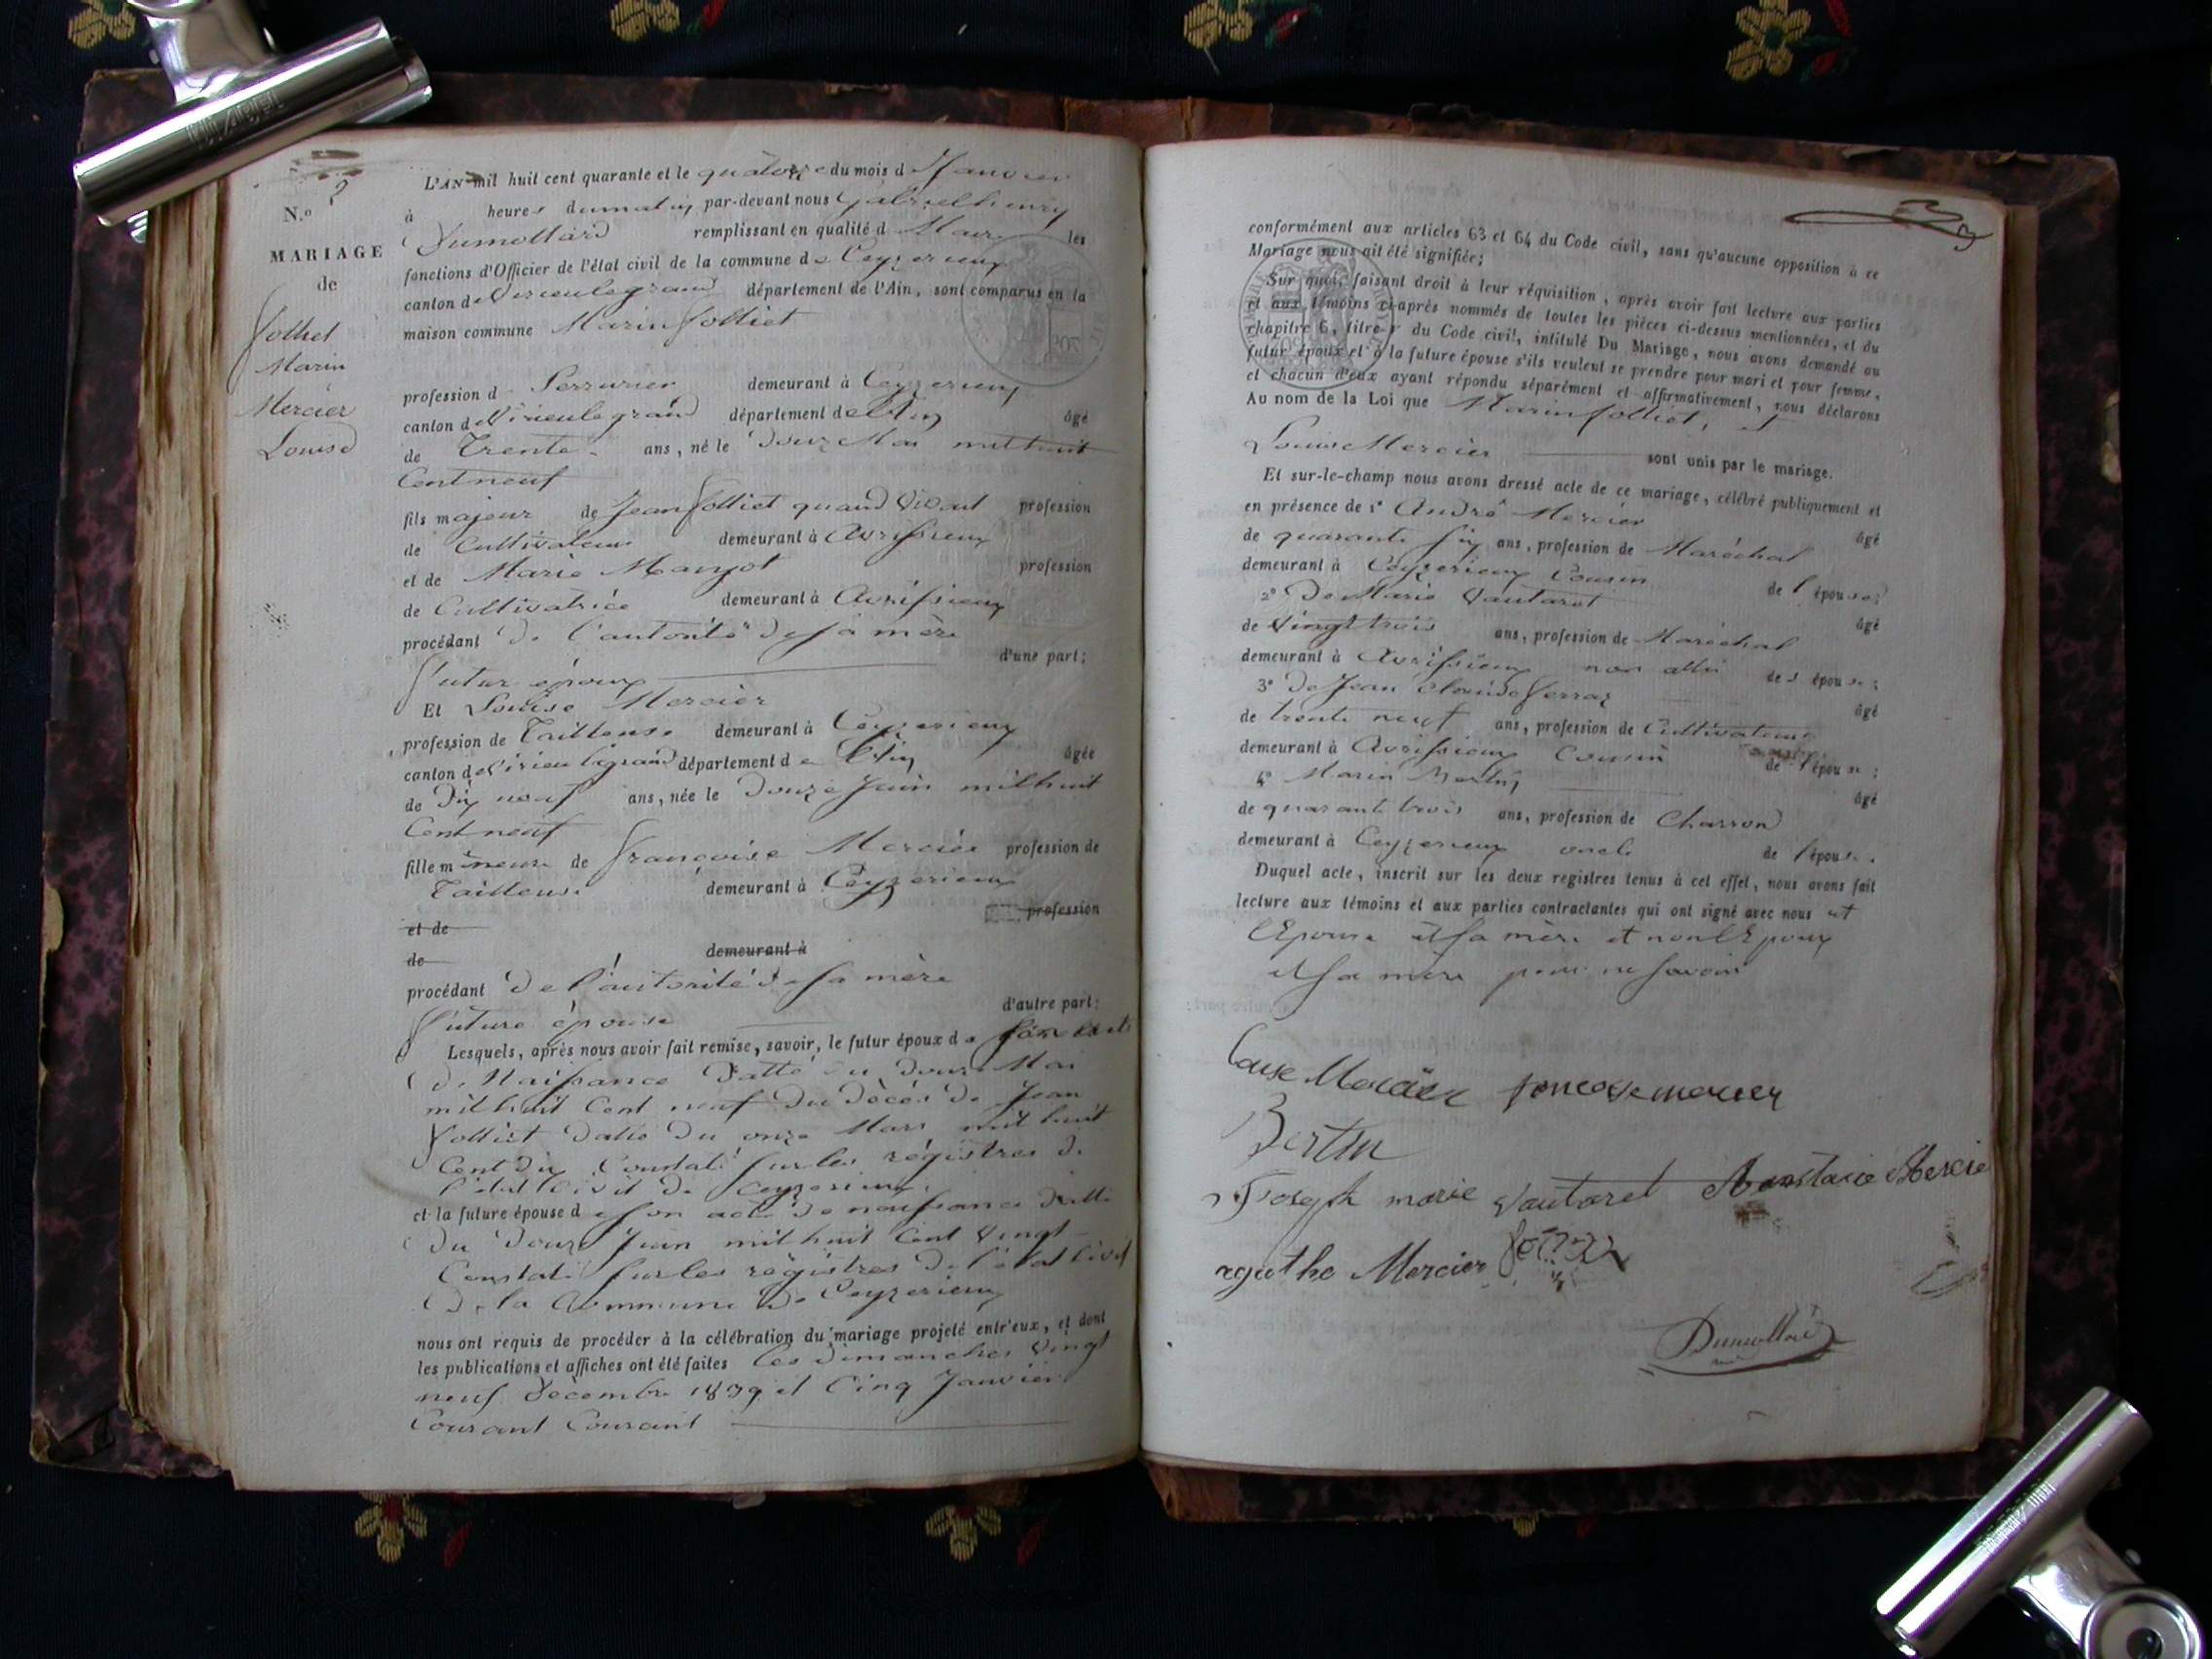 N.° 2
MARIAGE
de
Jolliet
Marin
Mercier
Louise
L'AN mil huit cent quarante et le quatorze du mois d Janvier
à heures du matin par-devant nous Gabriel henry
Dumollard remplissant en qualité d Maire les
fonctions d'Officier de l'état civil de la commune de Ceyzerieux
canton de Virieu le grand département de l'Ain, sont comparus en la
maison commune Marin Jolliet
profession d Serrurier demeurant à Ceyzerieux
canton de Virieu le grand département de l'Ain âgé
de Trente ans, né le Douze Mai mil huit
Cent neuf
fils majeur de Jean Jolliet quand Vivant profession
de Cultivateur demeurant à Avrissieux
et de Marie Manjot profession
de Cultivatrice demeurant à Avrissieux
procédant De l'autorité de sa mère
d'une part;
futur époux
Et Louise Mercier
profession de Tailleuse demeurant à Ceyzerieux
canton de Virieu legrand département de l'Ain âgée
de Dix neuf ans, née le Douze Juin mil huit
Cent neuf
fille mineure de françoise Mercier profession de
Tailleuse demeurant à Ceyzerieux
et de profession
de demeurant à
procédant De l'autorité de sa mère
d'autre part:
future épouse
Lesquels, après nous avoir fait remise, savoir, le futur époux de
De Naissance Datté du Douze Mai
mil huit Cent neuf Du Décès De Jean
Jolliet Datté Du onze Mars mil huit
Cent Dix Constaté sur les régistres De
l'état Civil De Ceyzerieux.
et la future épouse de son acte De naissance Datté
Du Douze Juin mil huit Cent Vingt
Constaté sur les régistres De l'état Civil
De la Commune De Ceyzerieux
nous ont requis de procéder à la célébration du mariage projeté entr'eux, et dont
les publications et affiches ont été faites les Dimanches Vingt
neuf Décembre 1839 et Cinq Janvier
Courant Courant
conformément aux articles 63 et 64 du Code civil, sans qu'aucune opposition à ce
Mariage nous ait été signifiée;
Sur quoi, faisant droit à leur réquisition, après avoir fait lecture aux parties
et aux témoins ci-après nommés de toutes les pièces ci-dessus mentionnées, et du
chapitre 6, titre v du Code civil, intitulé Du Mariage, nous avons demandé au
futur époux et à la future épouse s'ils veulent se prendre pour mari et pour femme,
et chacun d'eux ayant répondu séparément et affirmativement, nous déclarons
Au nom de la Loi que Marin Jolliet, et
Louise Mercier sont unis par le mariage.
Et sur-le-champ nous avons dressé acte de ce mariage, célébré publiquement et
en présence de 1° André Mercier
de quarante six ans, profession de Maréchal âgé
demeurant à Ceyzerieux Cousin de l'épouse;
2° De Marie Vautaret
de Vingt trois ans, profession de Maréchal âgé
demeurant à Avrissieux non allié des épouse;
3° De Jean Claude Verraz
de trente neuf ans, profession de Cultivateur âgé
demeurant à Avrissieux Cousin de l'épouse;
4° Marin Bertin
de quarante trois ans, profession de Charron âgé
demeurant à Ceyzerieux oncle de l'épouse.
Duquel acte, inscrit sur les deux registres tenus à cet effet, nous avons fait
lecture aux témoins et aux parties contractantes qui ont signé avec nous et
l'Epouse et sa mère et non l'Epoux
et sa mère pour ne savoir
Louise Mercier francoise mercier
Bertin
Joseph marie Vautaret Anastasie Mercie
agathe Mercier
Dumollard